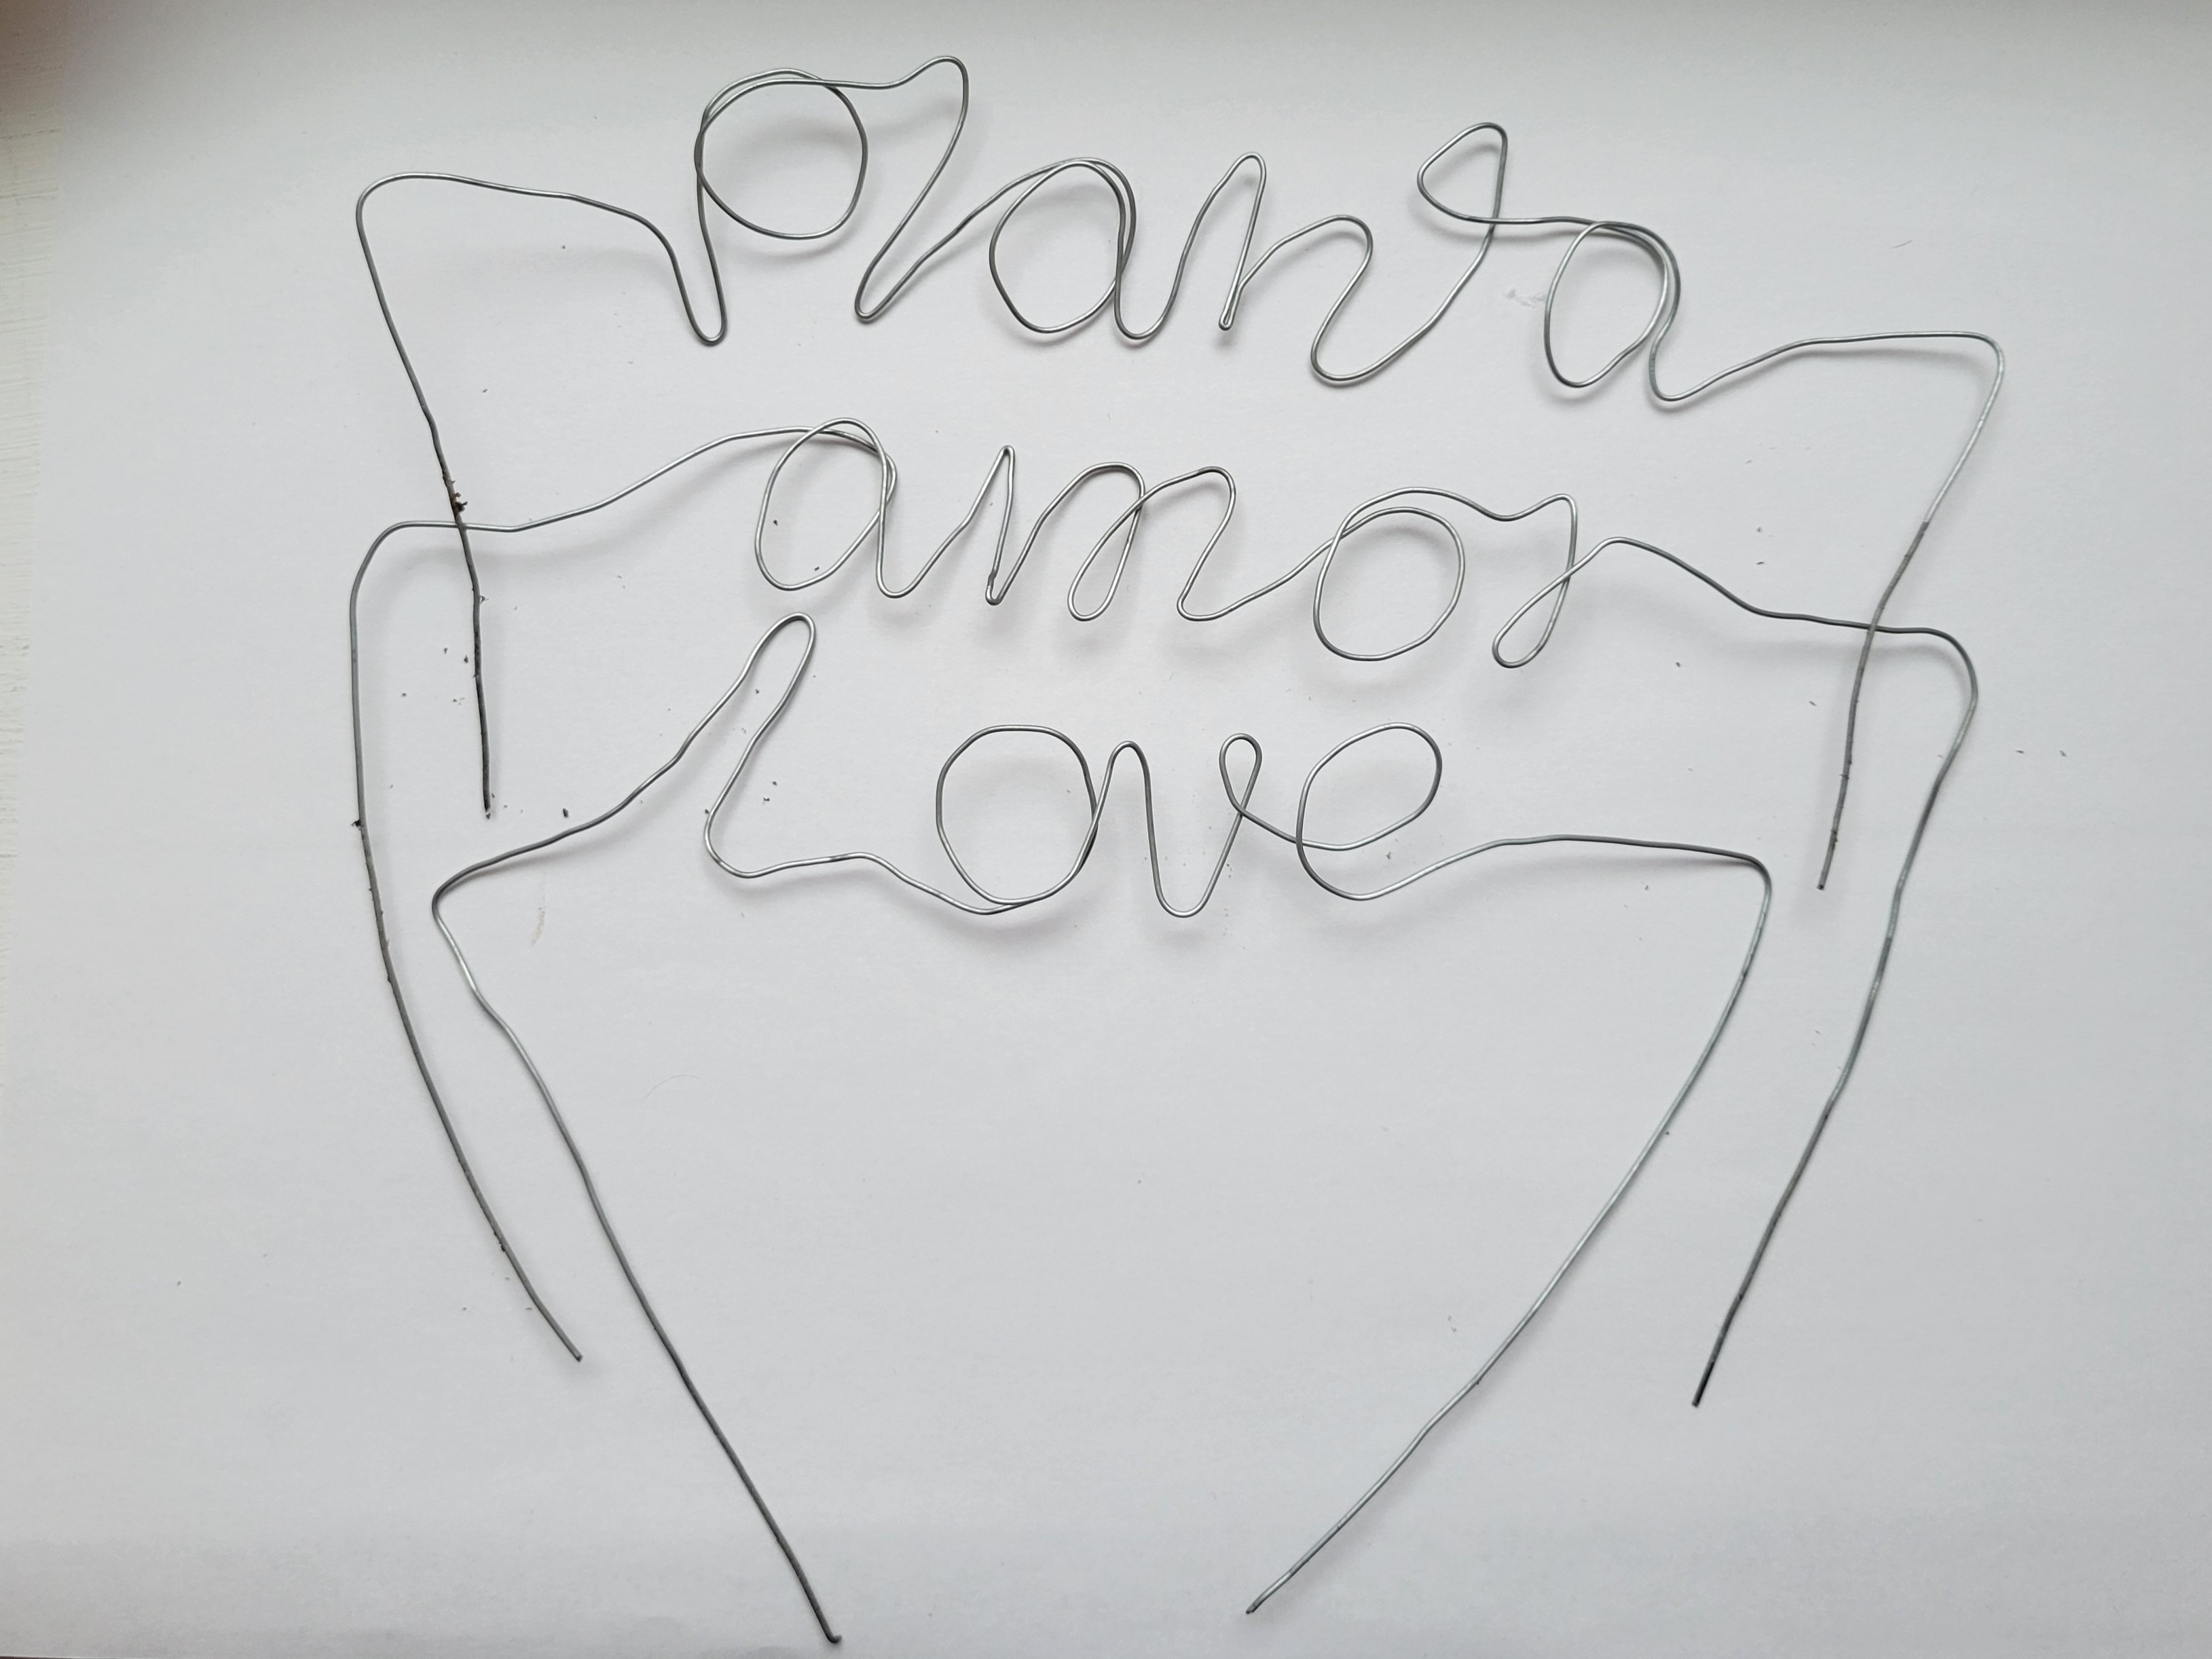 planta
amor
Love